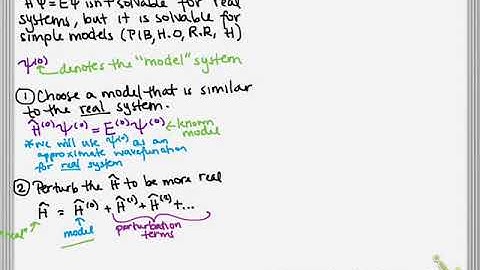 ĤΨ=EΨ isn't solvable for real
systems, but it is solvable for
simple models (PIB, H.O, R.R, H)
Ψ(0) denotes the "model" system
① Choose a model that is similar
to the real system.
Ĥ(0)Ψ(0) = E(0)Ψ(0) ← known model
* we will use Ψ(0) as an
approximate wavefunction
for real system
② Perturb the Ĥ to be more real
Ĥ = Ĥ(0) + Ĥ(1) + Ĥ(2) + ...
"real" model perturbation
terms